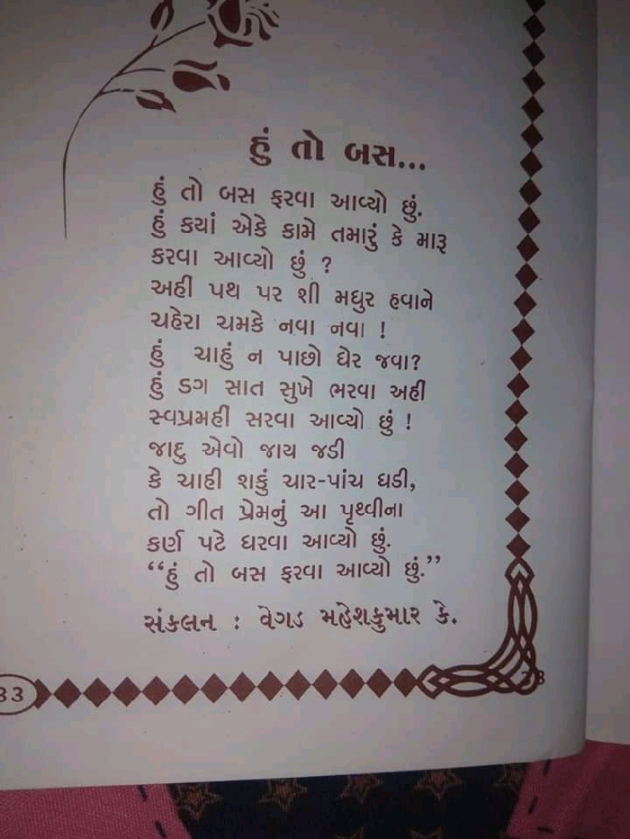 હું તો બસ...
હું તો બસ ફરવા આવ્યો છું.
હું કયાં એકે કામે તમારું કે મારૂ
કરવા આવ્યો છું ?
અહીં પથ પર શી મધુર હવાને
ચહેરા ચમકે નવા નવા !
હું ચાહું ન પાછો ઘેર જવા?
હું ડગ સાત સુખે ભરવા અહીં
સ્વપ્રમહીં સરવા આવ્યો છું !
જાદુ એવો જાય જડી
કે ચાહી શકું ચાર-પાંચ ઘડી,
તો ગીત પ્રેમનું આ પૃથ્વીના
કર્ણ પટે ધરવા આવ્યો છું.
“હું તો બસ ફરવા આવ્યો છું.”
સંકલન : વેગડ મહેશકુમાર કે.
33